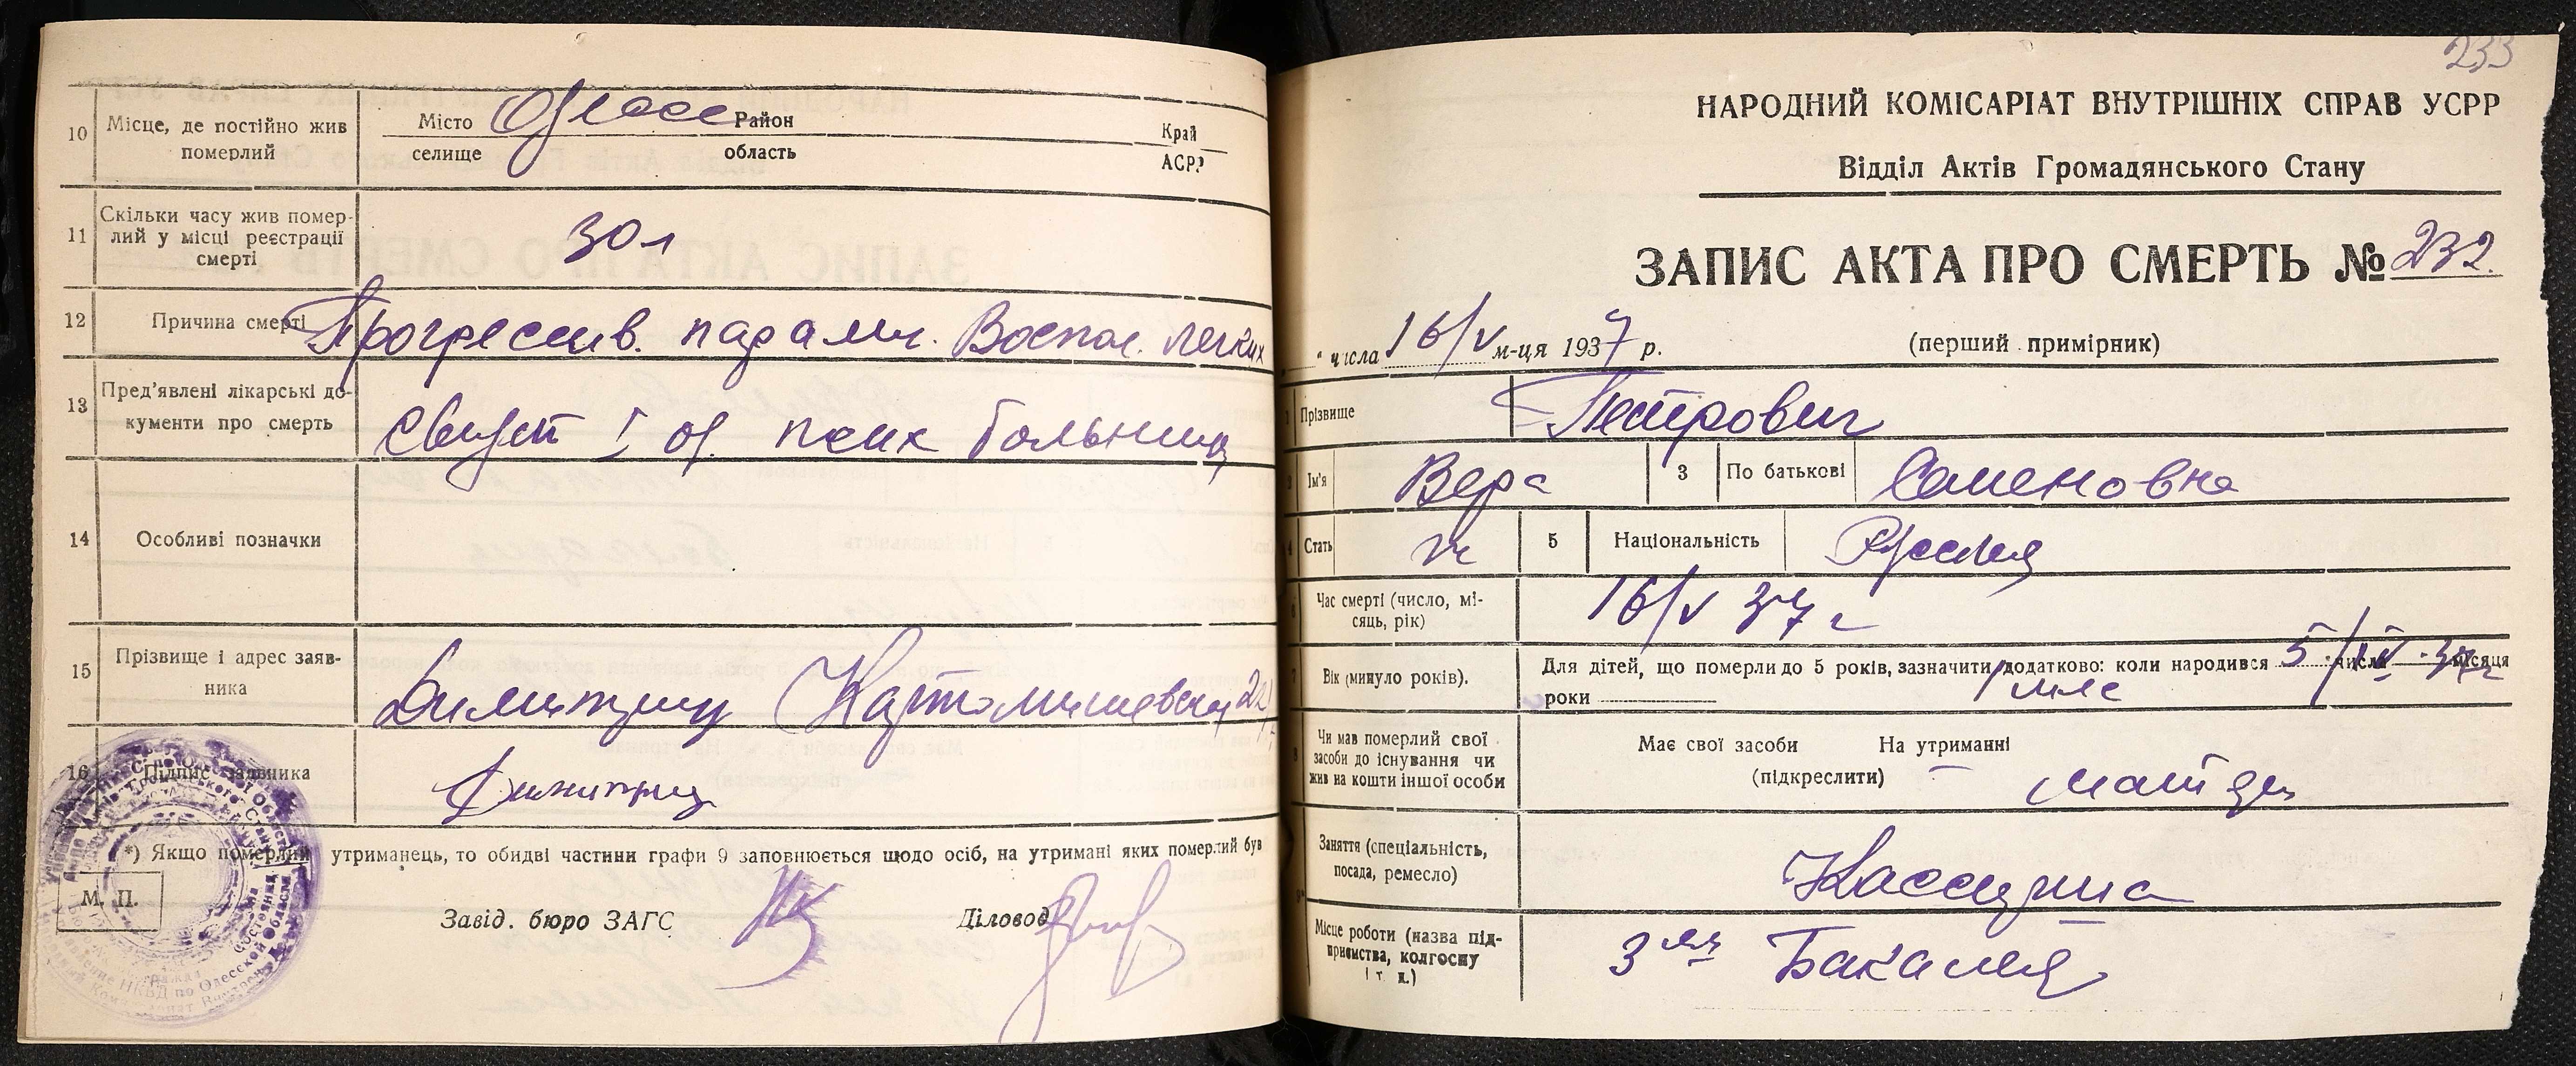 10 Місце, де постійно жив померлий
Місто Одесса Район Край
селище область АСРР
11 Скільки часу жив помер-
лий у місці реєстрації
смерті
30 л
12 Причина смерті Прогрессив. парали. Воспал. легких
13 Пред'явлені лікарські до-
кументи про смерть
Свидет I од. псих больницы
14 Особливі позначки
15 Прізвище і адрес заяв-
ника
16 Підпис заявника
*) Якщо померлий утриманець, то обидві частини графи 9 заповнюється щодо осіб, на утримані яких померлий був
М. П.
Завід. бюро ЗАГС Діловод
233
НАРОДНИЙ КОМІСАРІАТ ВНУТРІШНІХ СПРАВ УСРР
Відділ Актів Громадянського Стану
ЗАПИС АКТА ПРО СМЕРТЬ № 232.
(перший примірник)
" числа 16/V м-ця 1937 р.
Прізвище Петрович
Ім'я Вера 3 По батькові Семеновна
Стать ж 5 Національність Русская
Час смерті (число, мі-
сяць, рік)
16/V 37 г
Вік (минуло років).
Для дітей, що померли до 5 років, зазначити додатково: коли народився 5 числа IV 37 г місяця
роки 1 мес
Чи мав померлий свої
засоби до існування чи
жив на кошти іншої особи
Має свої засоби На утриманні
(підкреслити)
Заняття (спеціальність,
посада, ремесло)
Кассирша
Місце роботи (назва під-
приємства, колгоспу
і т. д.)
Бакалея